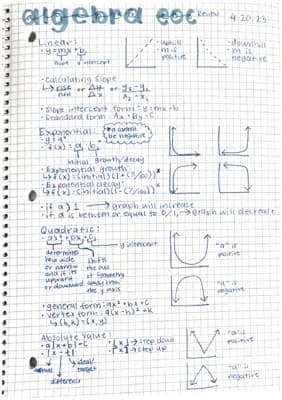 algebra eoc Review 4.20.23
Linear:
• y = mx + b
slope y intercept
• uphill
• m is
positive
• downhill
• m is
negative
• Calculating Slope
↳ rise/run or Δy/Δx or y₂-y₁/x₂-x₁
• Slope intercept form: y=mx+b
• Standard form Ax+By=C
Exponential
cannot
be negative
initial growth/decay
• Exponential growth
• Exponential decay:
• if a > 1 → graph will increase
• if a is between or equal to 0/1, → graph will decrease
Quadratic:
• ax² + bx + c
y intercept
determines
how wide
or narrow
and if its
upward
or downward
shifts
the axis
of symmetry
away from
the y axis
"a" is
positive
"a" is
negative
• general form: ax² + bx + c
• vertex form: a(x-h)² + k
↳ (h,k) = (x,y)
Absolute Value:
→ step down
→ step up
ideal/
target
actual
difference
"a" is
positive
"a" is
negative